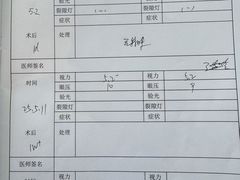 验光
5.2 裂隙灯 (-) 裂隙灯 (-)
症状 症状
术后 处理
医师签名
时间 视力 5.2 视力 5.2
眼压 10 眼压 9
验光 验光
23.5.11 裂隙灯 裂隙灯
症状 症状
术后 处理
1W+
医师签名
视力 视力